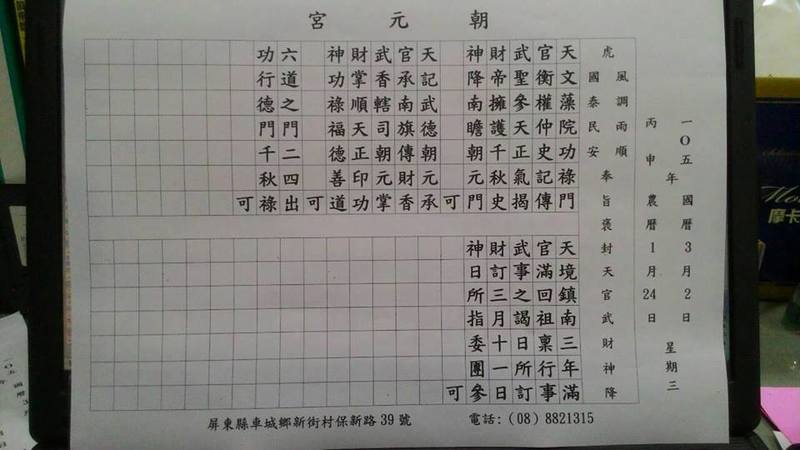 朝元宮
一O五年 國曆3月2日 星期三
丙申 農曆1月24日
風調雨順
國泰民安
虎 奉旨褒封天官武財神降
天文藻院功祿門
官衡權仲史記傳
武聖參天正氣揭
財帝擁護千秋史
神降南瞻朝元門
可
天記武德朝元承
官承南旗傳財香
武香轄司朝元掌
財掌順天正印功
神功祿福德善道
可
六道之門二四出
功行德門千秋祿
可
天境鎮南三年滿
官滿回祖稟行事
武事之謁日所訂
財訂三月十一日
神日所指委團參
可
屏東縣車城鄉新街村保新路39號 電話:(08)8821315
摩卡